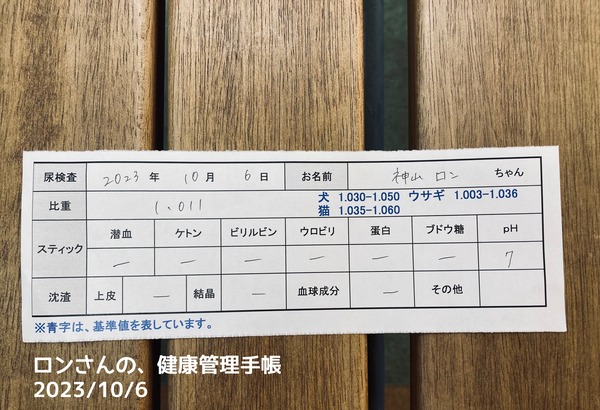 尿検査 2023 年 10 月 6 日 お名前 神山 ロン ちゃん
比重 1.011 犬 1.030-1.050 ウサギ 1.003-1.036
猫 1.035-1.060
スティック 潜血 ケトン ビリルビン ウロビリ 蛋白 ブドウ糖 pH
— — — — — — 7
沈渣 上皮 — 結晶 — 血球成分 — その他
※青字は、基準値を表しています。
ロンさんの、健康管理手帳
2023/10/6